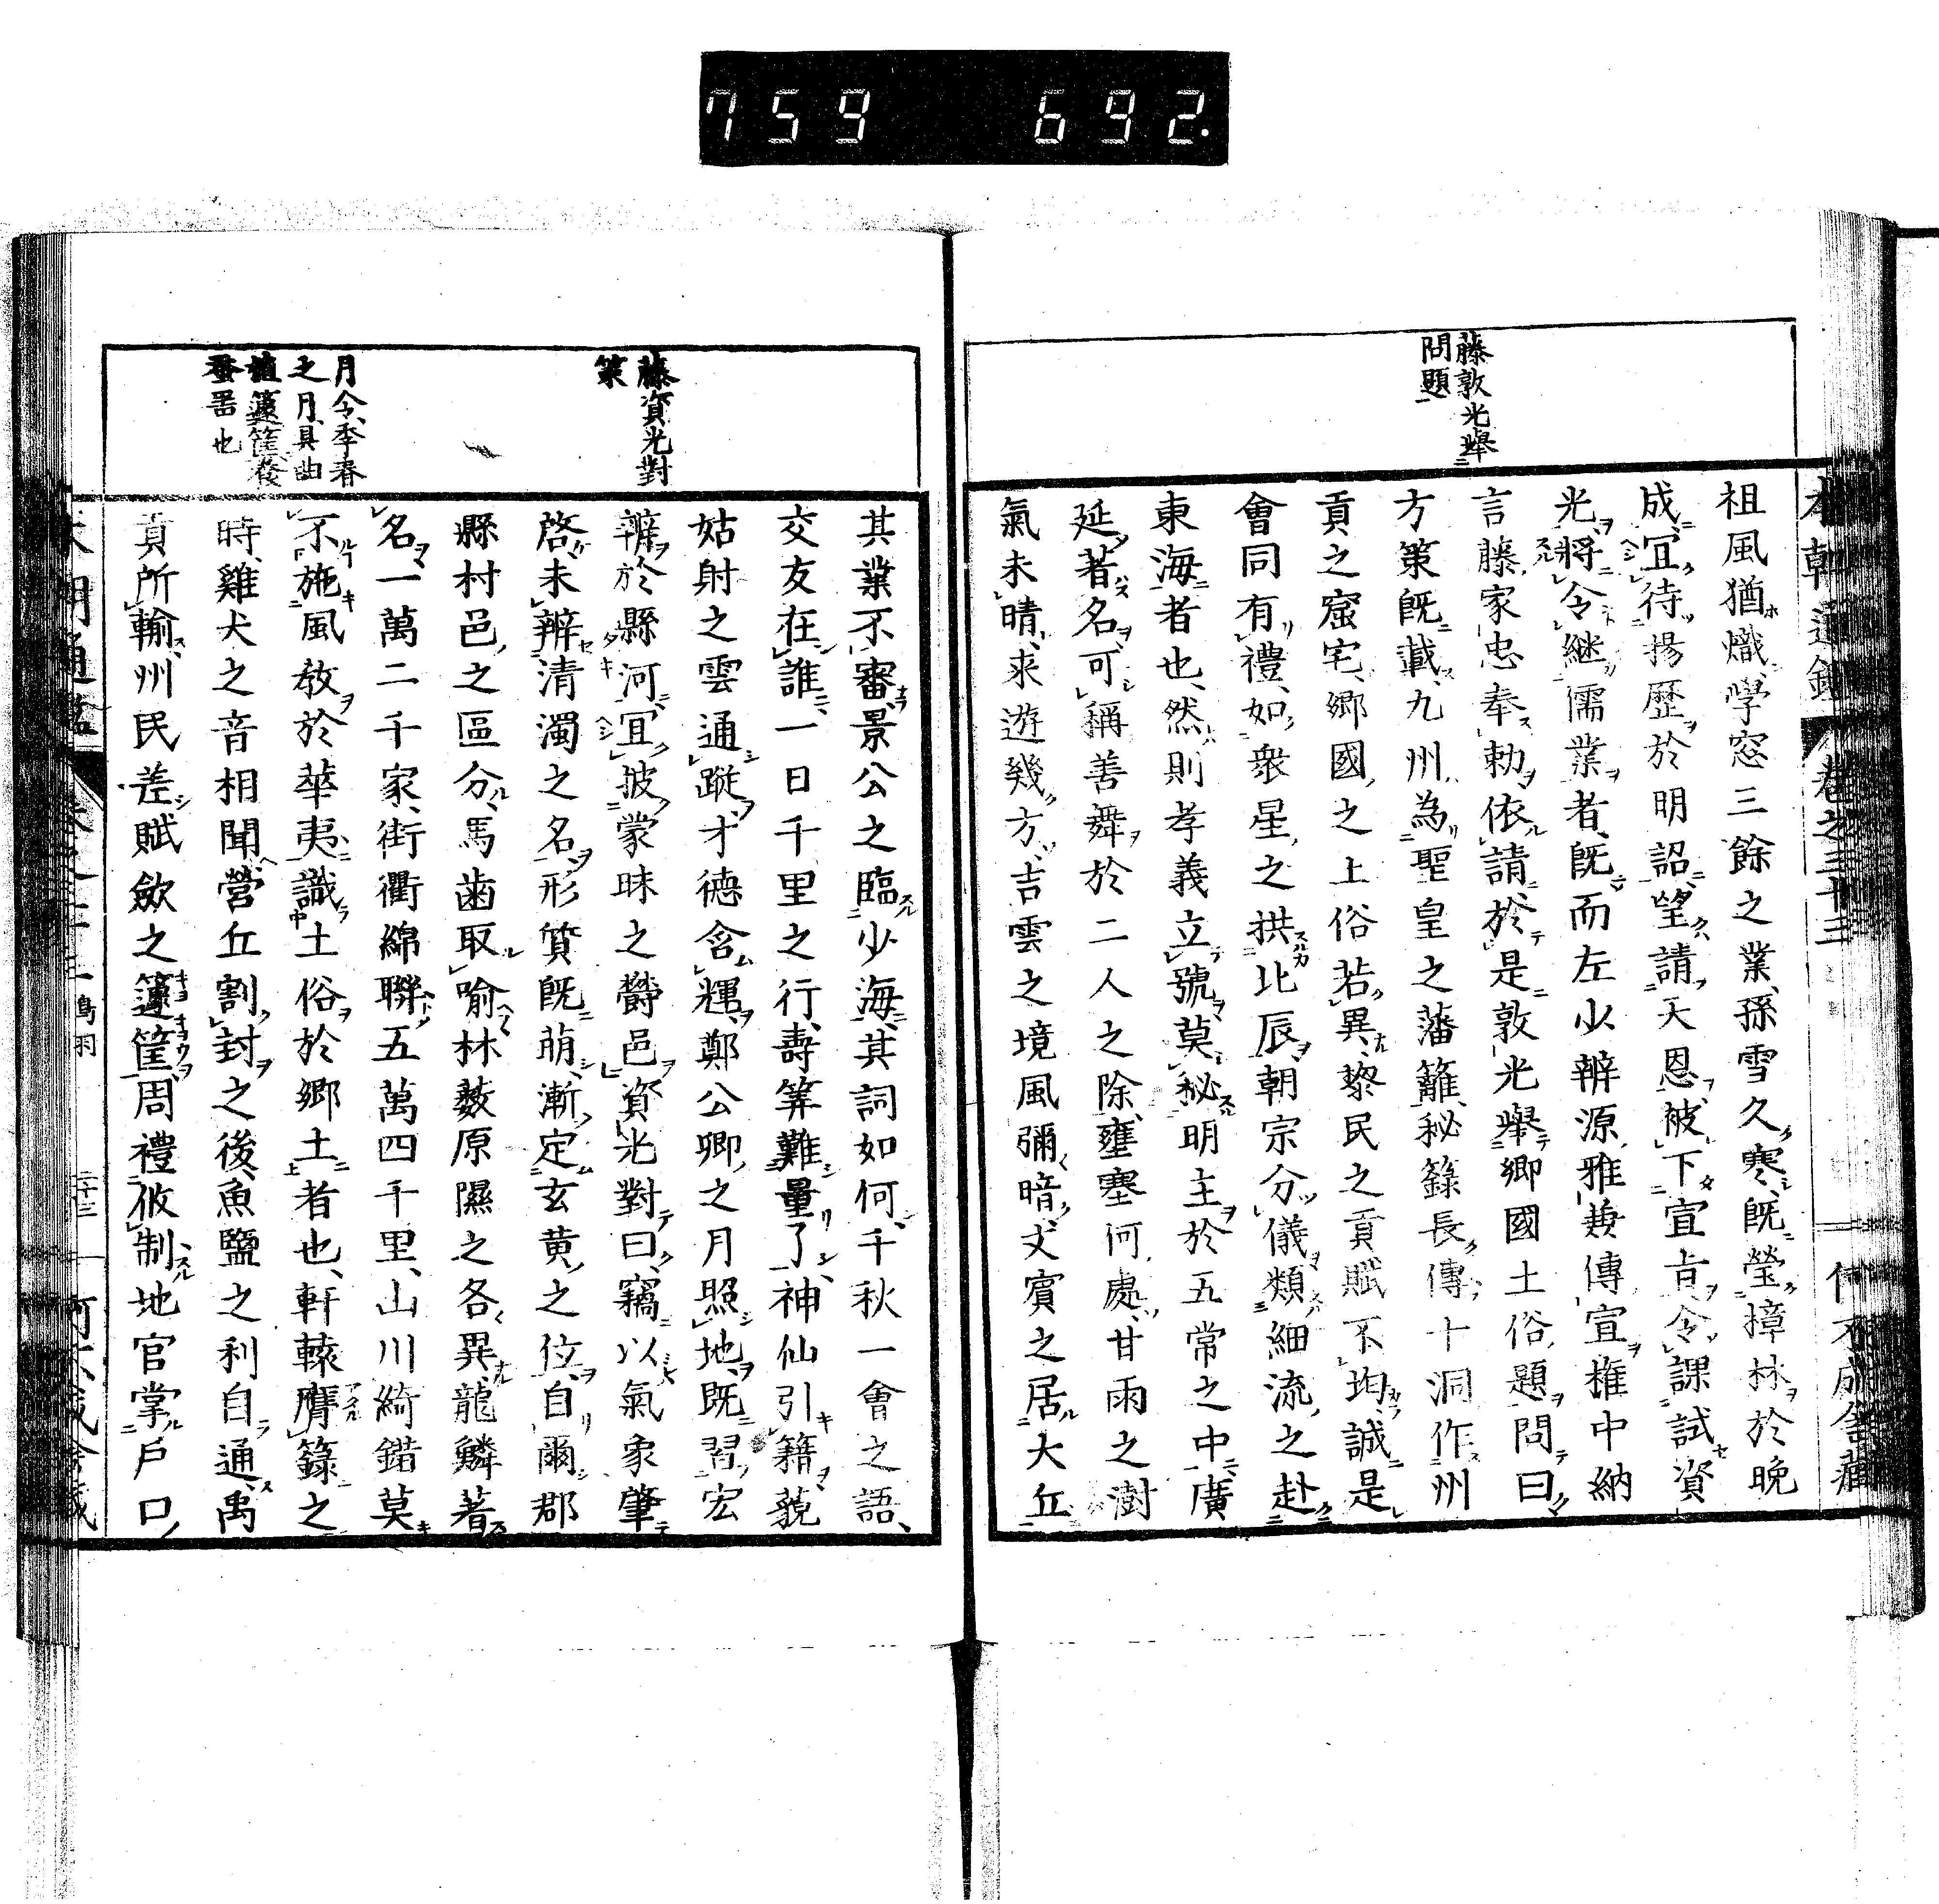 759 692.
藤敦光舉
問題
祖風猶熾學窓三餘之業孫雪久寒既瑩樟林於晩
成宜待揚歷於明詔望請天恩被下宣旨令課試資
光將令継儒業者既而左少辨源雅兼傳宣權中納
言藤家忠奉勅依請於是敦光舉郷國土俗題問曰
方策既載九州為聖皇之藩籬秘籙長傳十洞作州
貢之窟宅郷國之上俗若異黎民之貢賦不均誠是
會同有禮如衆星之拱北辰朝宗分儀類細流之赴
東海者也然則孝義立號莫秘明主於五常之中廣
延著名可稱善舞於二人之除壅塞何處甘雨之澍
氣未晴求遊幾方吉雲之境風彌暗丈賓之居大丘
藤資光對
策
月令季春
之月具曲
植籧筐後
蚕器也
其業不審景公之臨少海其詞如何千秋一會之語
交友在誰一日千里之行壽筭難量了神仙引籍藐
姑射之雲通蹤才德含輝鄭公卿之月照地既習宏
辨於縣河宜披蒙昧之欝邑資光對曰竊以氣象肇
啓未辨清濁之名形質既萌漸定玄黄之位自爾郡
縣村邑之區分馬歯取喻林薮原隰之各異龍鱗著
名一萬二千家街衢綿聯五萬四千里山川綺錯莫
不施風教於華夷識土俗於郷土者也軒轅膺籙之
時雞犬之音相聞營丘割封之後魚鹽之利自通禹
貢所輸州民差賦斂之籧筐周禮攸制地官掌戸口